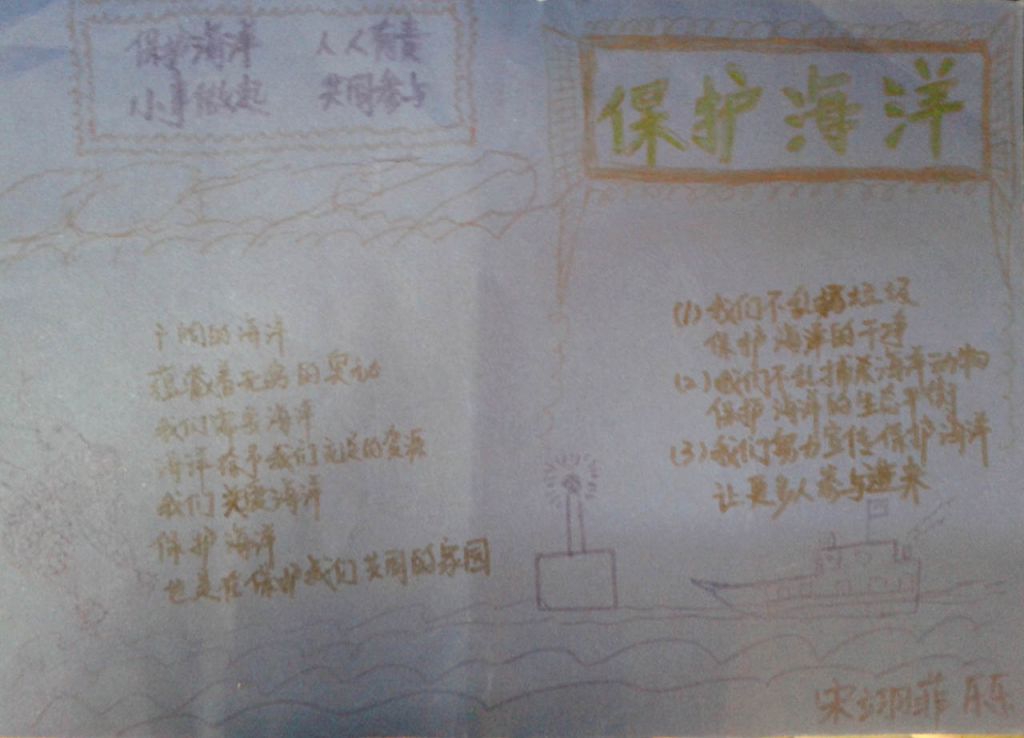 保护海洋 人人有责
小手做起 共同参与
保护海洋
广阔的海洋
蕴藏着无穷的奥秘
我们需要海洋
海洋给予我们充足的资源
我们关爱海洋
保护海洋
也是在保护我们共同的家园
(1)我们不乱扔垃圾
保护海洋的干净
(2)我们不乱捕杀海洋动物
保护海洋的生态平衡
(3)我们努力宣传保护海洋
让更多人参与进来
宋 菲